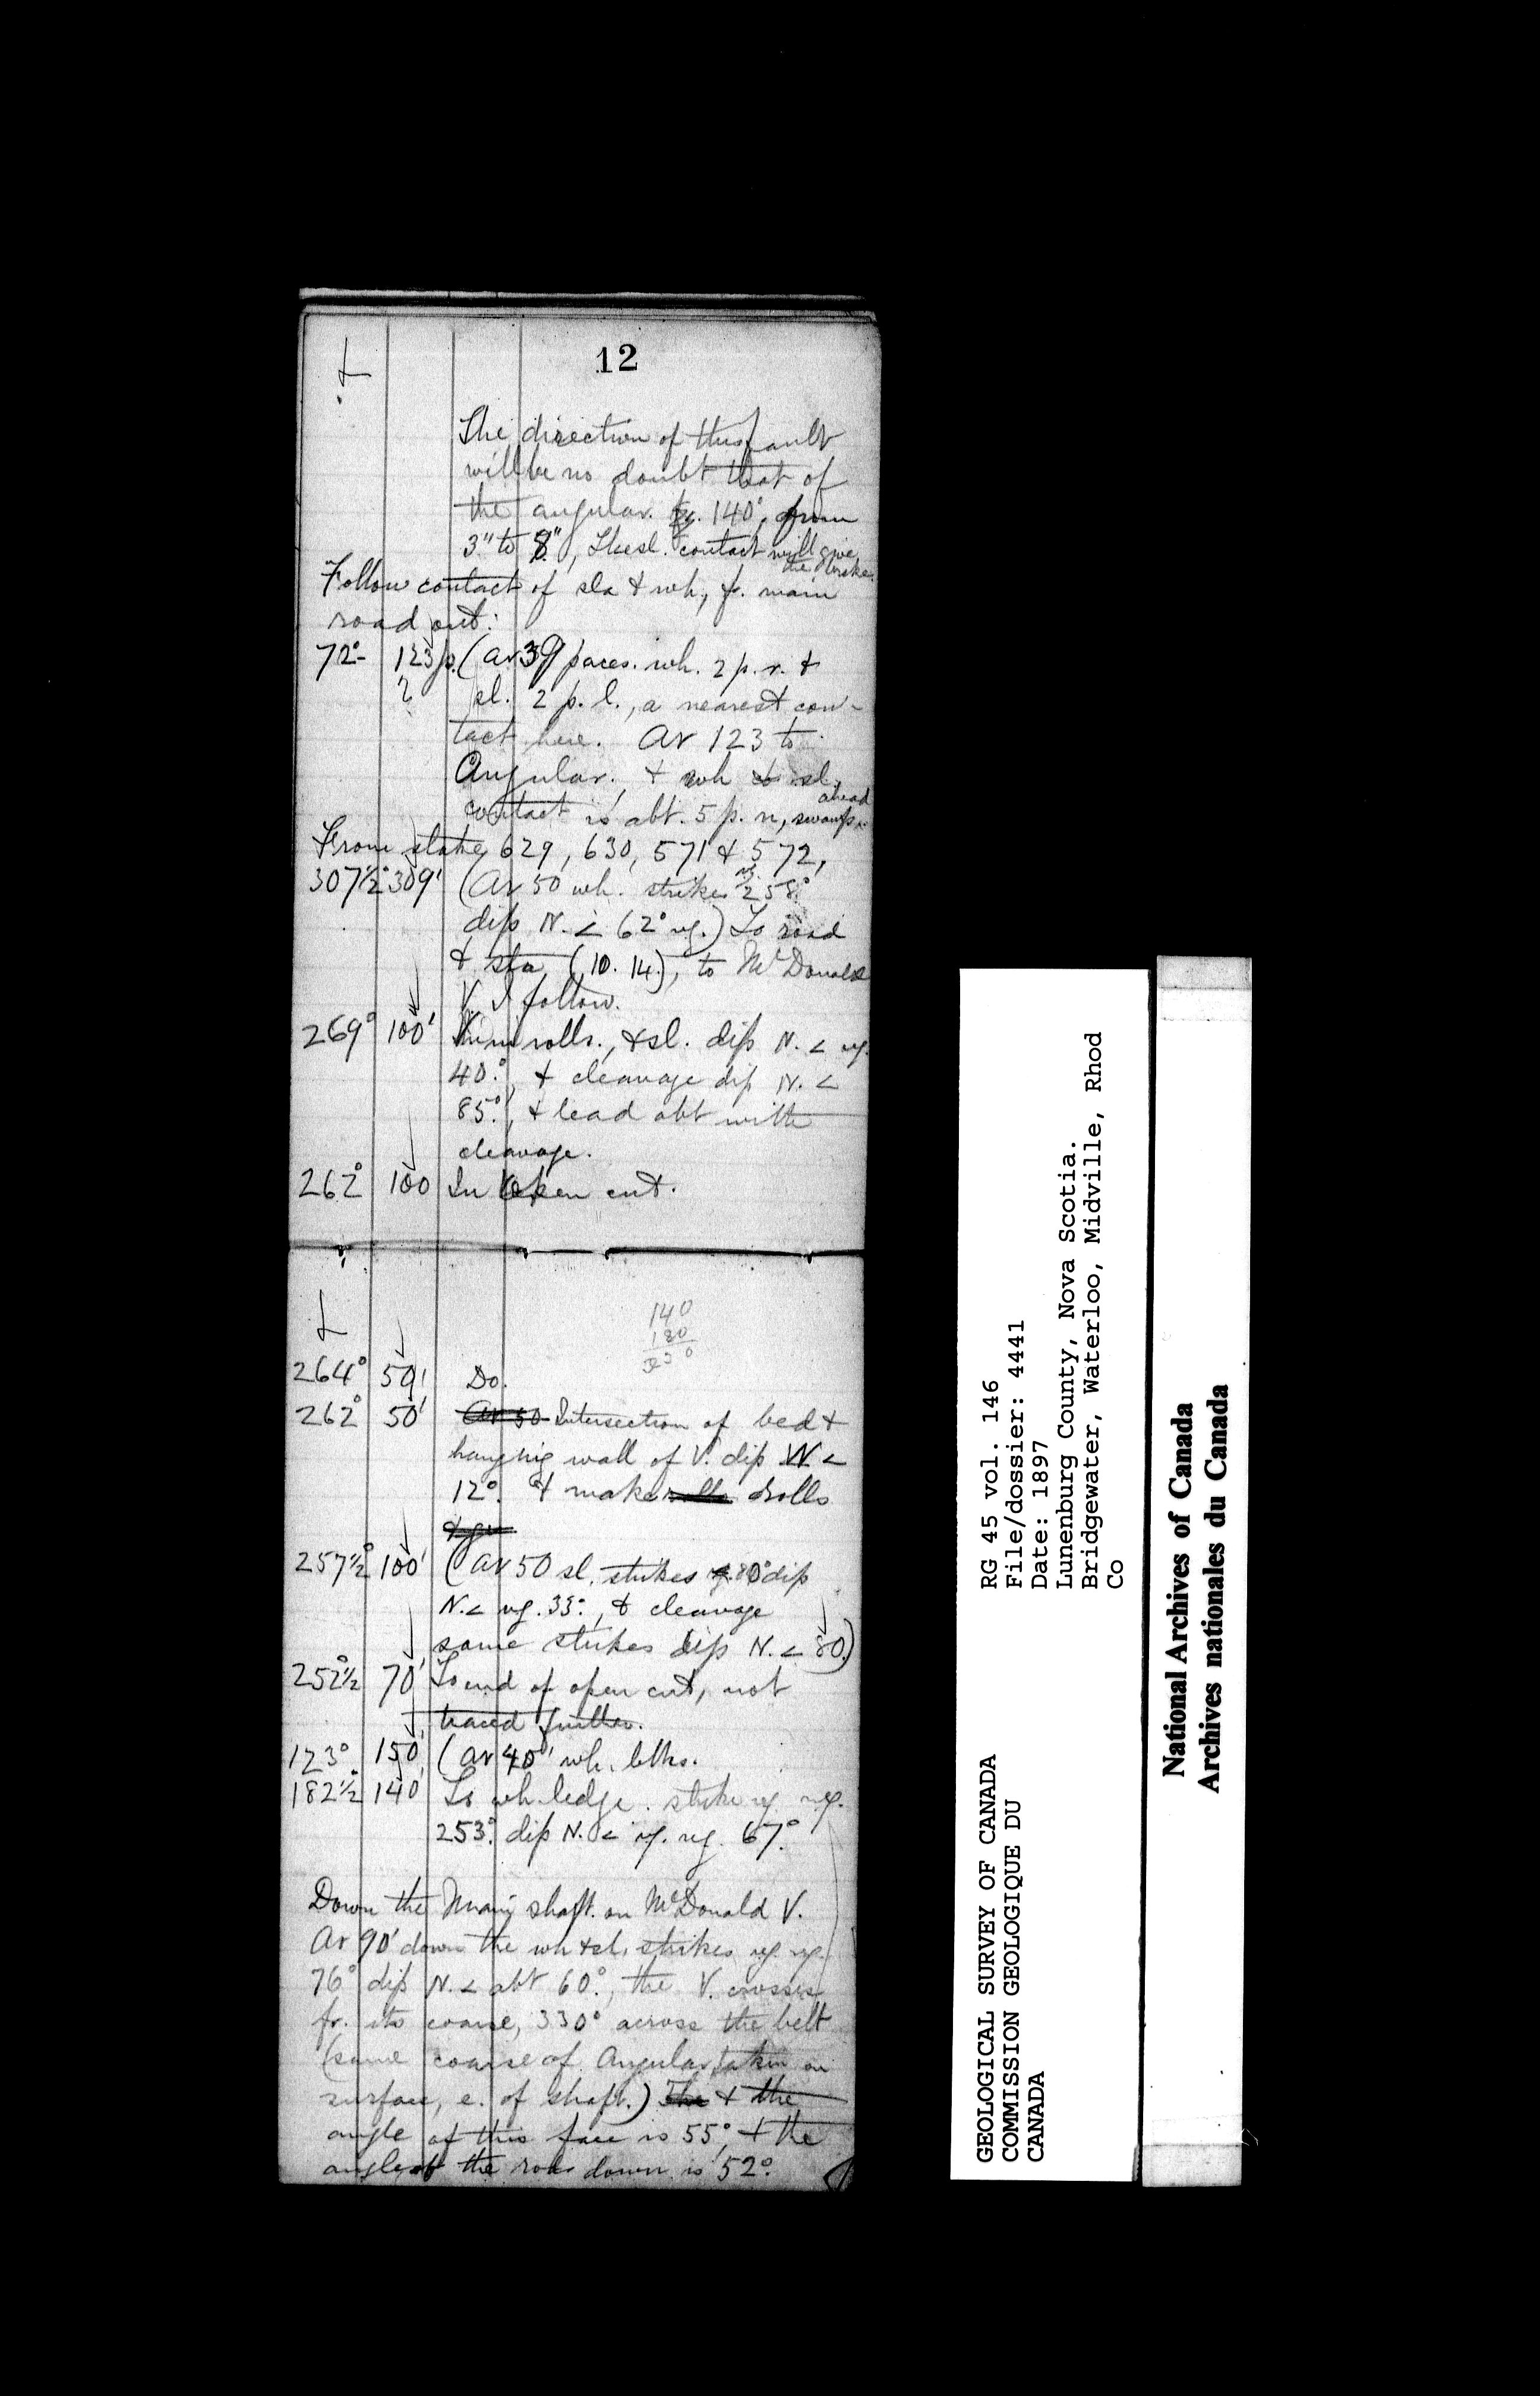 12
The direction of this fault
will be no doubt that of
the angular. 140°, from
3" to 8", The sl. contact will give
the
Follow contact of sla & wh, fr. main
road out:
72°- 123 p. (at 39 paces. wh. 2 p. r. &
? sl. 2 p. l., a nearest con-
tact here. At 123 to
Angular, & wh & sl.
contact is abt. 5 p. n, swamp
ahead
From stake 629, 630, 571 & 572,
307½° 309' (At 50 wh. strikes 258°
dip N. < 62° vg.) To road
& sta (10. 14.), to McDonald
V. I follow.
269° 100' rolls., & sl. dip N. < vg.
40°, & cleavage dip N. <
85°, & lead abt with
cleavage.
262° 100 In open cut.
140
180
264° 50' Do.
262° 50' At 50 Intersection of bed &
hanging wall of V. dip W. <
12°. & makes rolls
257½° 100' (At 50 sl. strikes 80° dip
N. < vg. 33°, & cleavage
same strikes dip N. < 80.)
252½° 70' To end of open cut, not
traced further.
123° 150' (at 40' wh. blks.
182½ 140' To wh. ledge. strike vg. vg.
253° dip N. < vg. vg. 67°
Down the shaft on McDonald V.
At 90' down the wh & sl. strikes vg. vg.
76° dip N. < abt 60°, the V. crosses
fr. its coarse, 330° across the belt
(same coarse of Angular, taken on
surface, e. of shaft.) The & the
angle of this face is 55°, & the
angle of the down is 52°.
RG 45 vol. 146
File/dossier: 4441
Date: 1897
Lunenburg County, Nova Scotia.
Bridgewater, Waterloo, Midville, Rhod
Co
GEOLOGICAL SURVEY OF CANADA
COMMISSION GEOLOGIQUE DU
CANADA
National Archives of Canada
Archives nationales du Canada